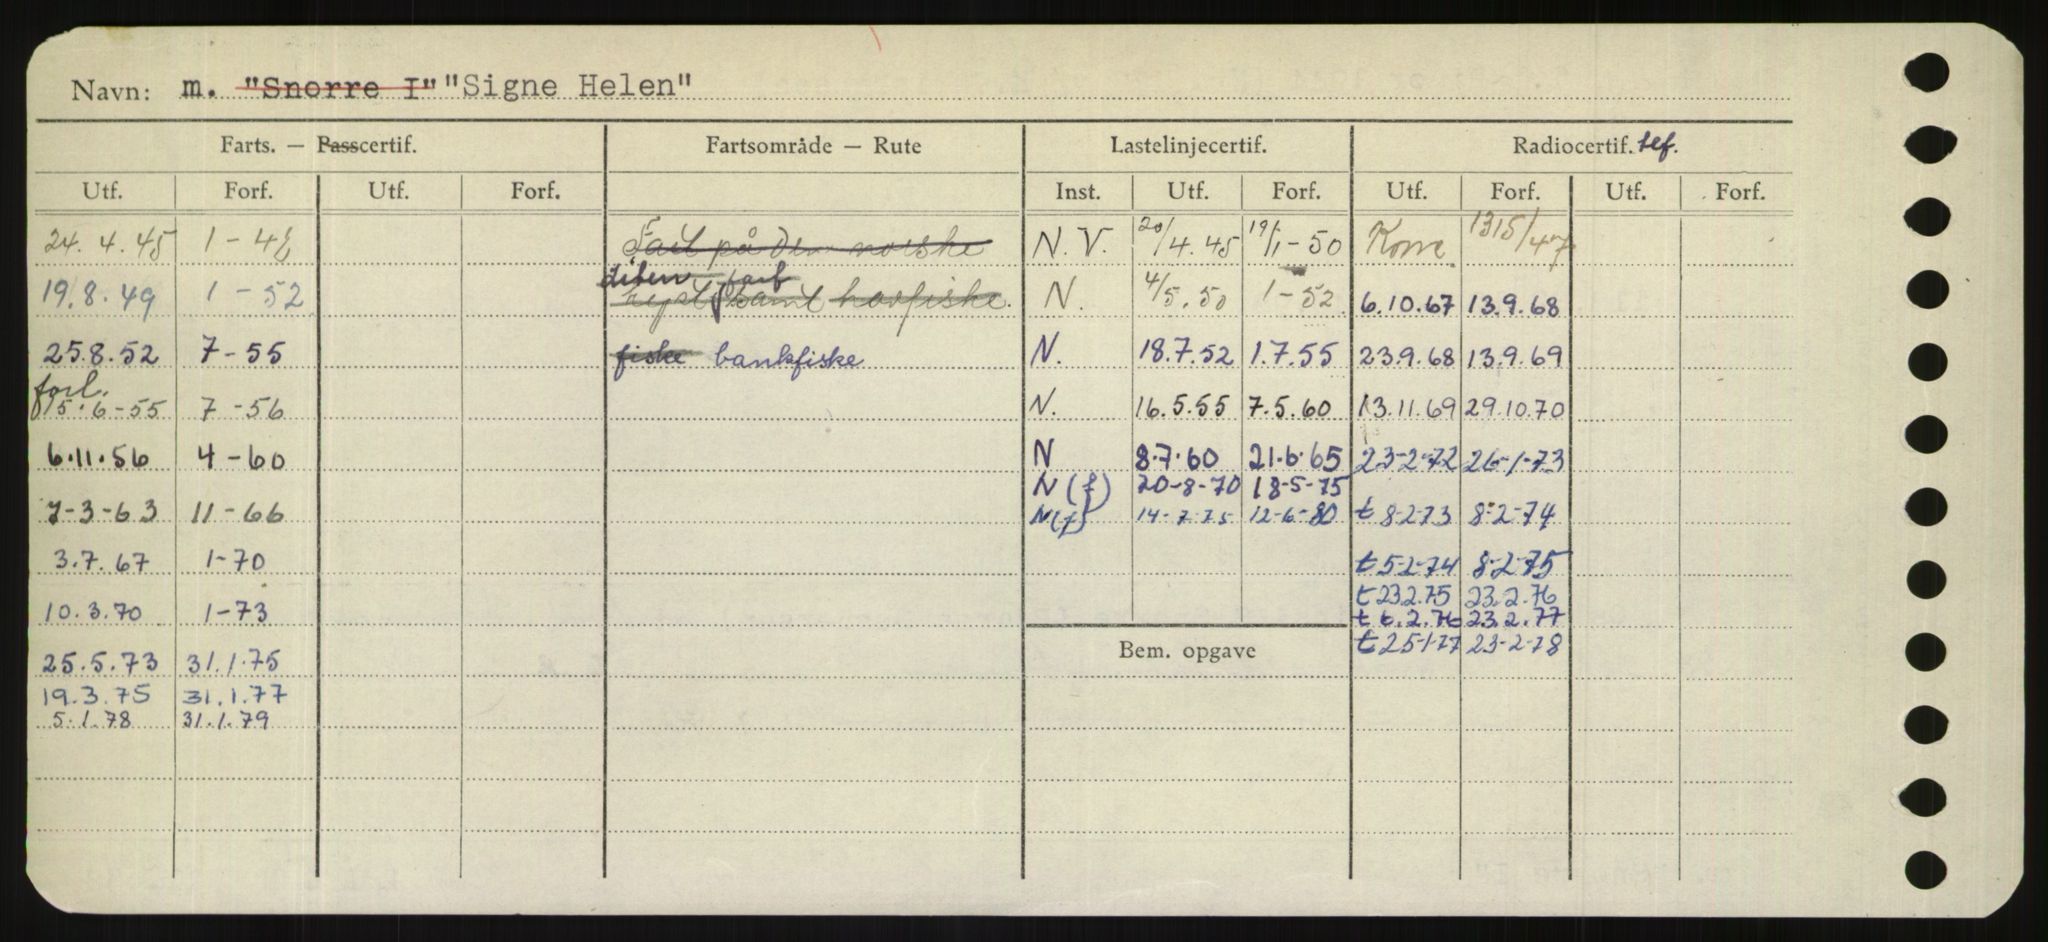 Navn: m. "Snorre I" "Signe Helen"
Farts. — Passcertif. Fartsområde — Rute Lastelinjecertif. Radiocertif. tlf.
Utf. Forf. Utf. Forf. Inst. Utf. Forf. Utf. Forf. Utf. Forf.
24. 4. 45 Fart på den norske N. V. 20/4. 45 19/1-50
19. 8. 49 1 - 52 samt havfiske. N. 4/5. 50 1 - 52 6.10.67 13.9.68
25.8.52 7-55 fiske bankfiske N. 18.7.52 1.7.55 23.9.68 13.9.69
forl.
15.6-55 7-56 N. 16.5.55 7.5.60 13.11.69 29.10.70
6.11.56 4-60 N 8.7.60 21.6.65 23-2-72 26-1-73
N(f) 20-8-70 18-5-75
7-3-63 11-66 N(f) 14-7-75 12-6-80 t 8-2-73 8-2-74
3.7.67 1-70 t 5-2-74 8-2-75
t 23.2.75 23.2.76
10.3.70 1-73 t 6.2.76 23.2.77
25.5.73 31.1.75 Bem. opgave t 25-1-77 23-2-78
19.3.75 31.1.77
5.1.78 31.1.79